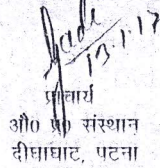 13.1.17
प्राचार्य
औ० प्र० संस्थान
दीघाघाट, पटना